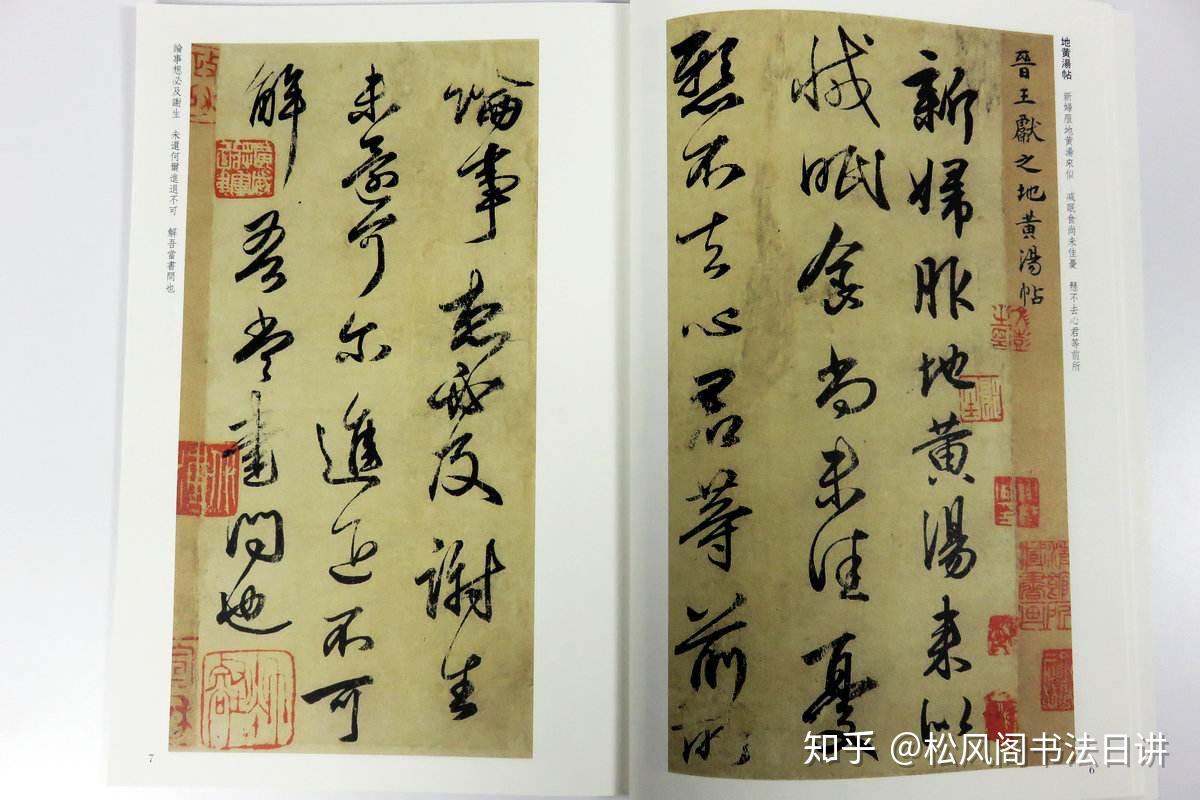 地黄湯帖 新婦服地黄湯來似 减眠食尚未佳憂 懸不去心君等前所
晉王獻之地黄湯帖
新婦服地黄湯来似
减眠食尚未佳憂
懸不去心君等前所
6
論事想必及謝生
未還何尔進退不可
解吾當書問也
論事想必及謝生 未還何爾進退不可 解吾當書問也
7
知乎 @松风阁书法日讲